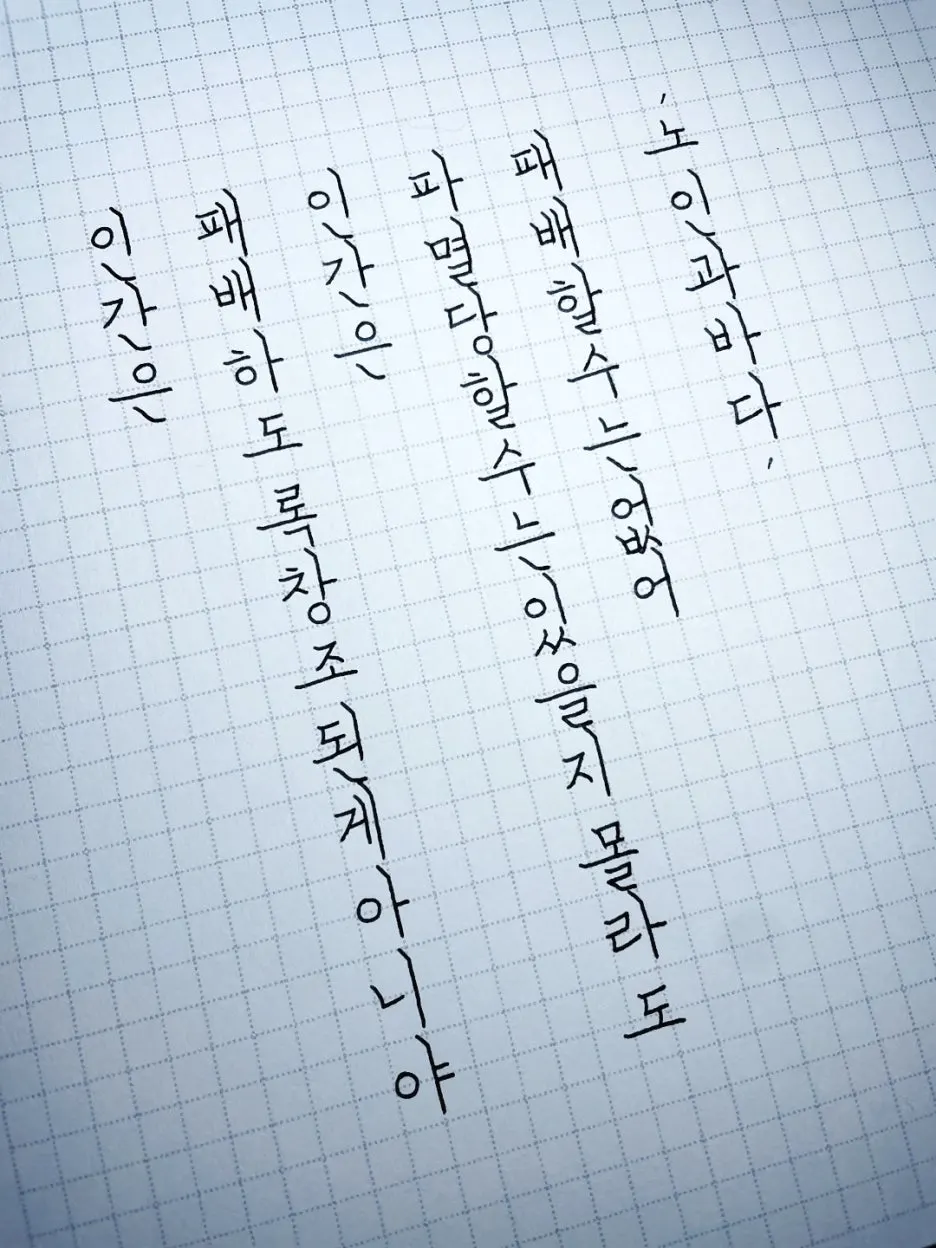 인간은
패배하도록창조된게아니야
인간은
파멸당할수는있을지몰라도
패배할수는없어
'노인과바다'